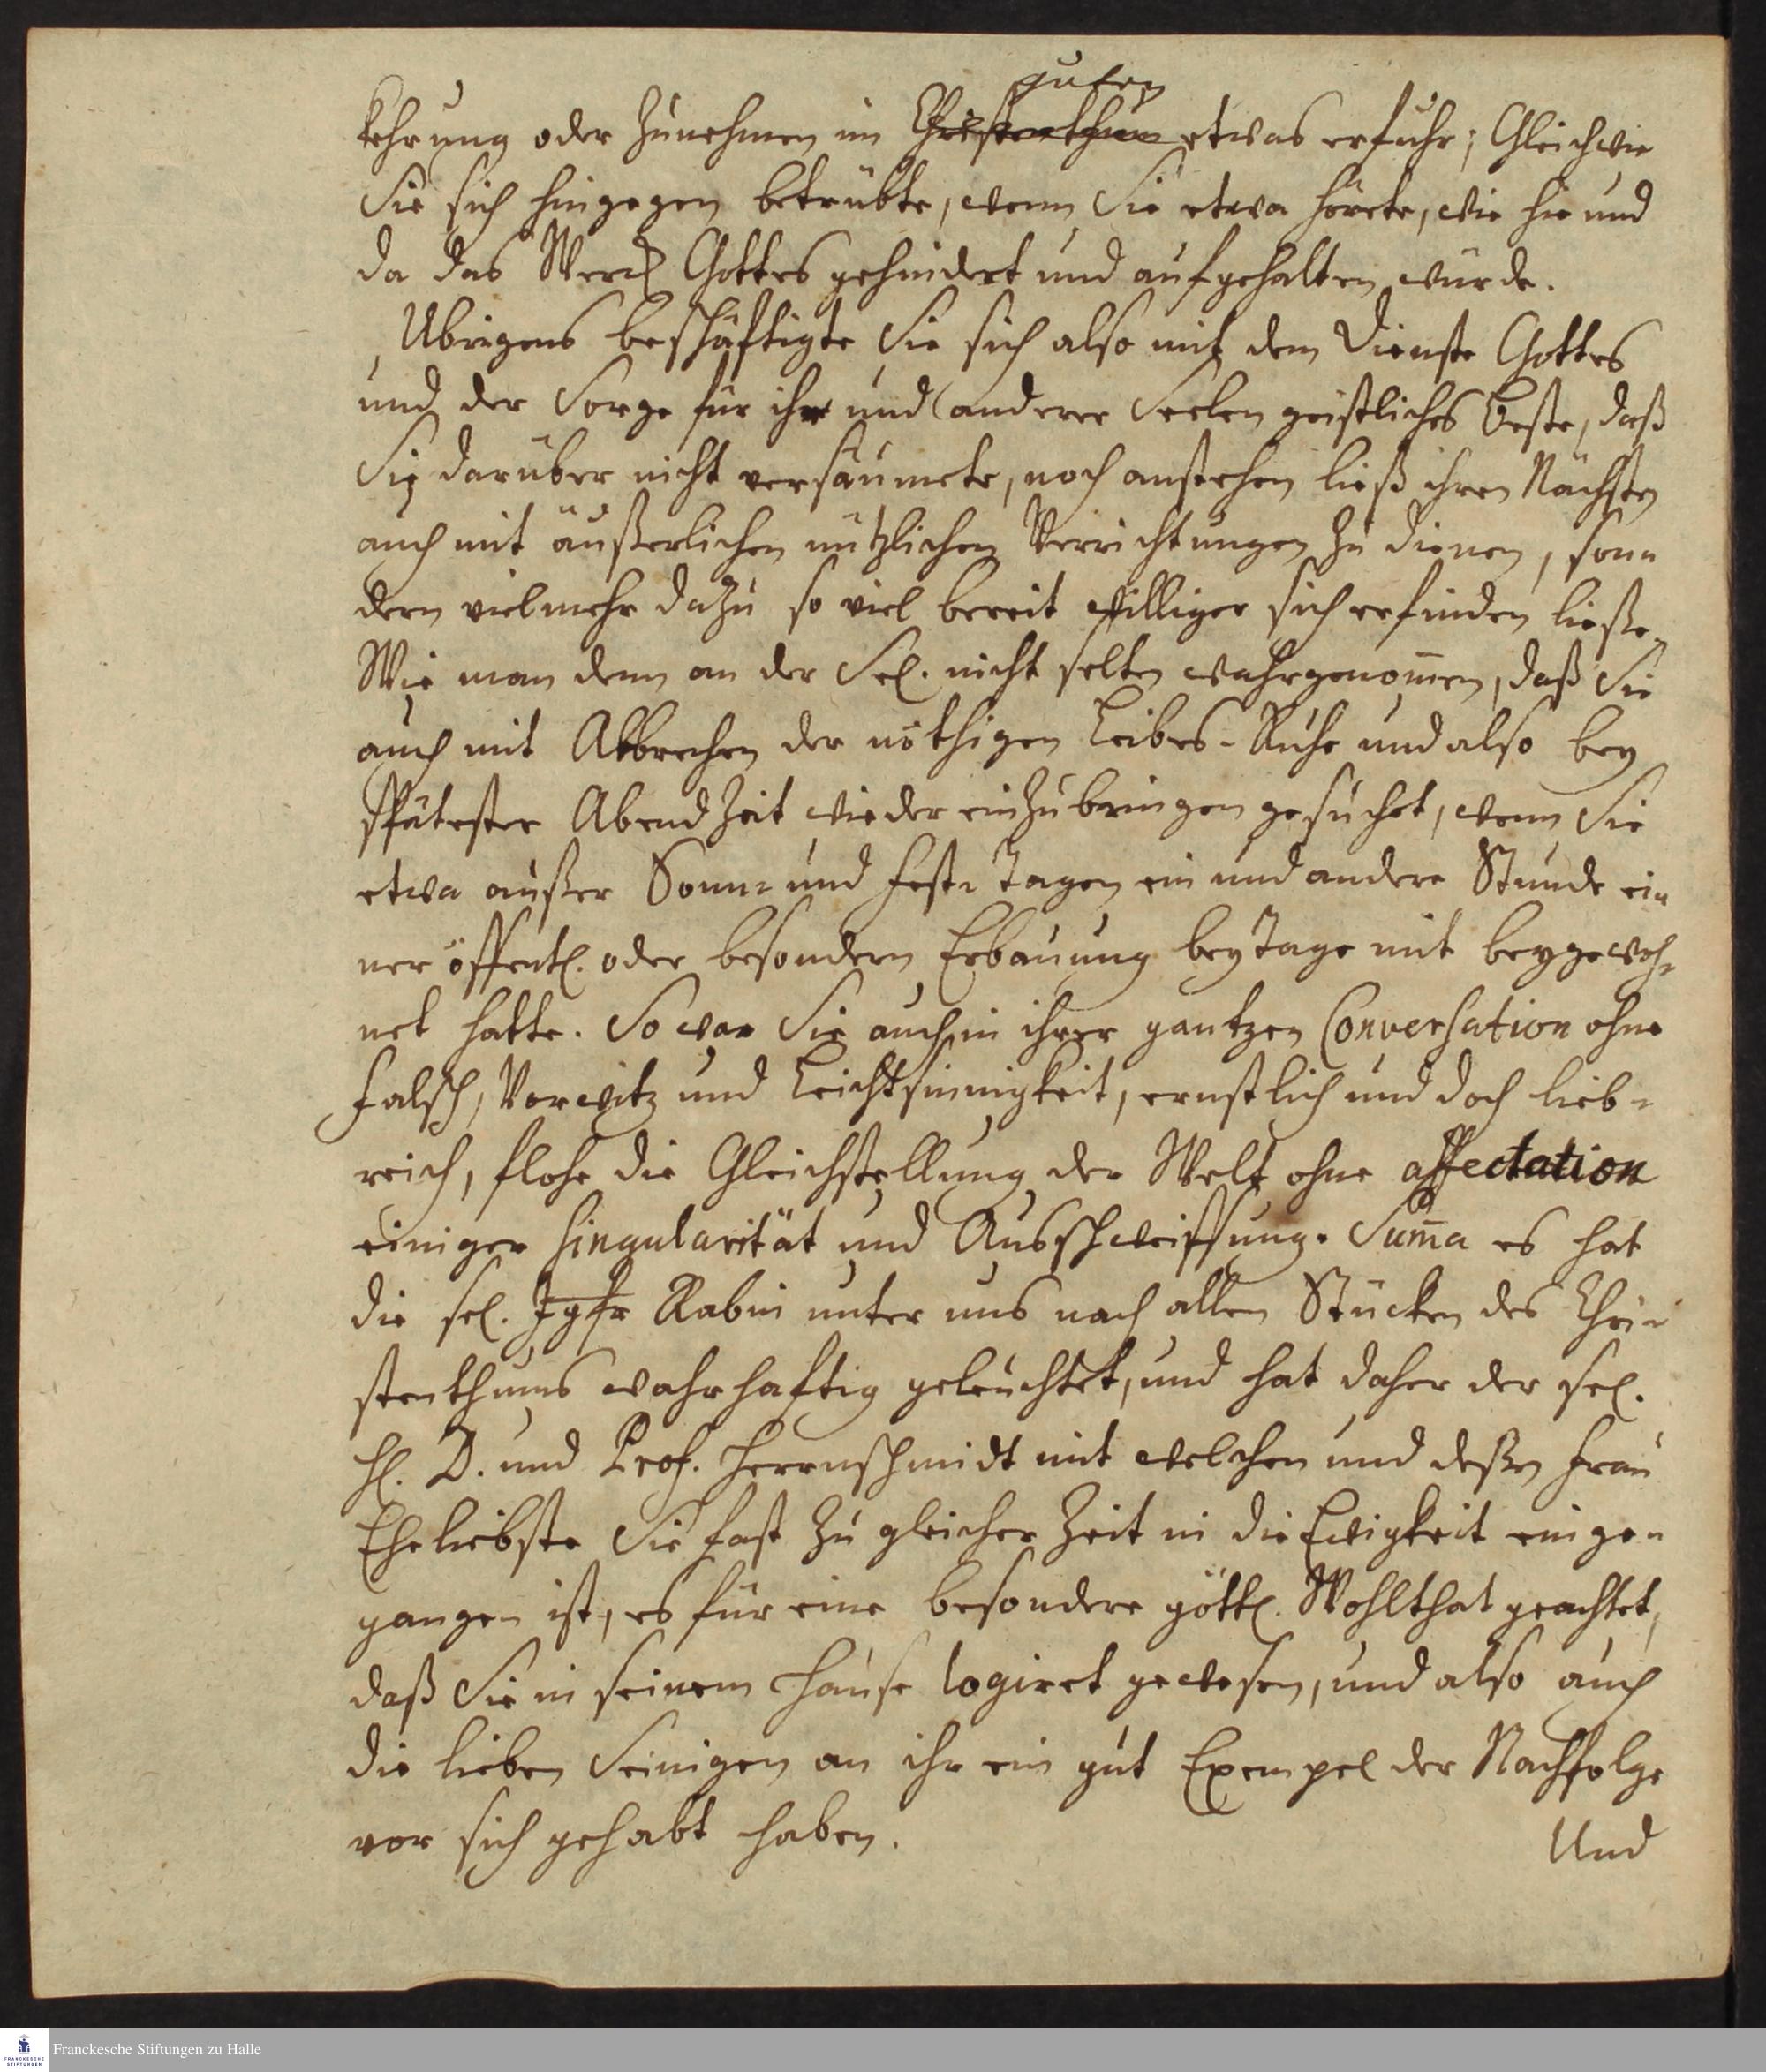 guten
kehrung oder Zunehmen im Christenthum etwas erfuhr; Gleichwie
Sie sich hingegen betrübte, wenn Sie etwa hörete, wie hie und
da das Werck Gottes gehindert und aufgehalten würde.
Ubrigens beschäftigte Sie sich also mit dem Dienste Gottes
und der Sorge für ihr und anderer Seelen geistliches Beste, daß
Sie darüber nicht versäumete, noch anstehen ließ ihren Nächsten
auch mit äußerlichen nützlichen Verrichtungen zu dienen, son=
dern vielmehr dazu so viel bereit williger sich erfinden ließe.
Wie man denn an der Sel. nicht selten wahrgenom̄en, daß Sie
auch mit Abbrechen der nöthigen Leibes-Ruhe und also bey
spätester Abend Zeit wieder einzubringen gesuchet, wenn Sie
etwa außer Sonn= und Fest= Tagen ein und andere Stunde ei=
ner öffentl. oder besondern Erbauung bey Tage mit beygewoh=
net hatte. So war Sie auch in ihrer gantzen Conversation ohne
Falsch, Vorwitz und Leichtsinnigkeit, ernstlich und doch lieb=
reich, flohe die Gleichstellung der Welt ohne affectation
einiger Singularität und Ausschweiffung. Sum̄a es hat
die sel. Jgfr Rabin unter uns nach allen Stücken des Chri=
stenthums wahrhaftig geleuchtet, und hat daher der sel.
H. D. und Prof. Herrnschmidt mit welchen und deßen Frau
Eheliebste Sie fast zu gleicher Zeit in die Ewigkeit einge=
gangen ist, es für eine besondere göttl. Wohlthat geachtet,
daß Sie in seinem Hause logiret gewesen, und also auch
die lieben Seinigen an ihr ein gut Exempel der Nachfolge
vor sich gehabt haben.
Und
Franckesche Stiftungen zu Halle
FRANCKESCHE
STIFTUNGEN